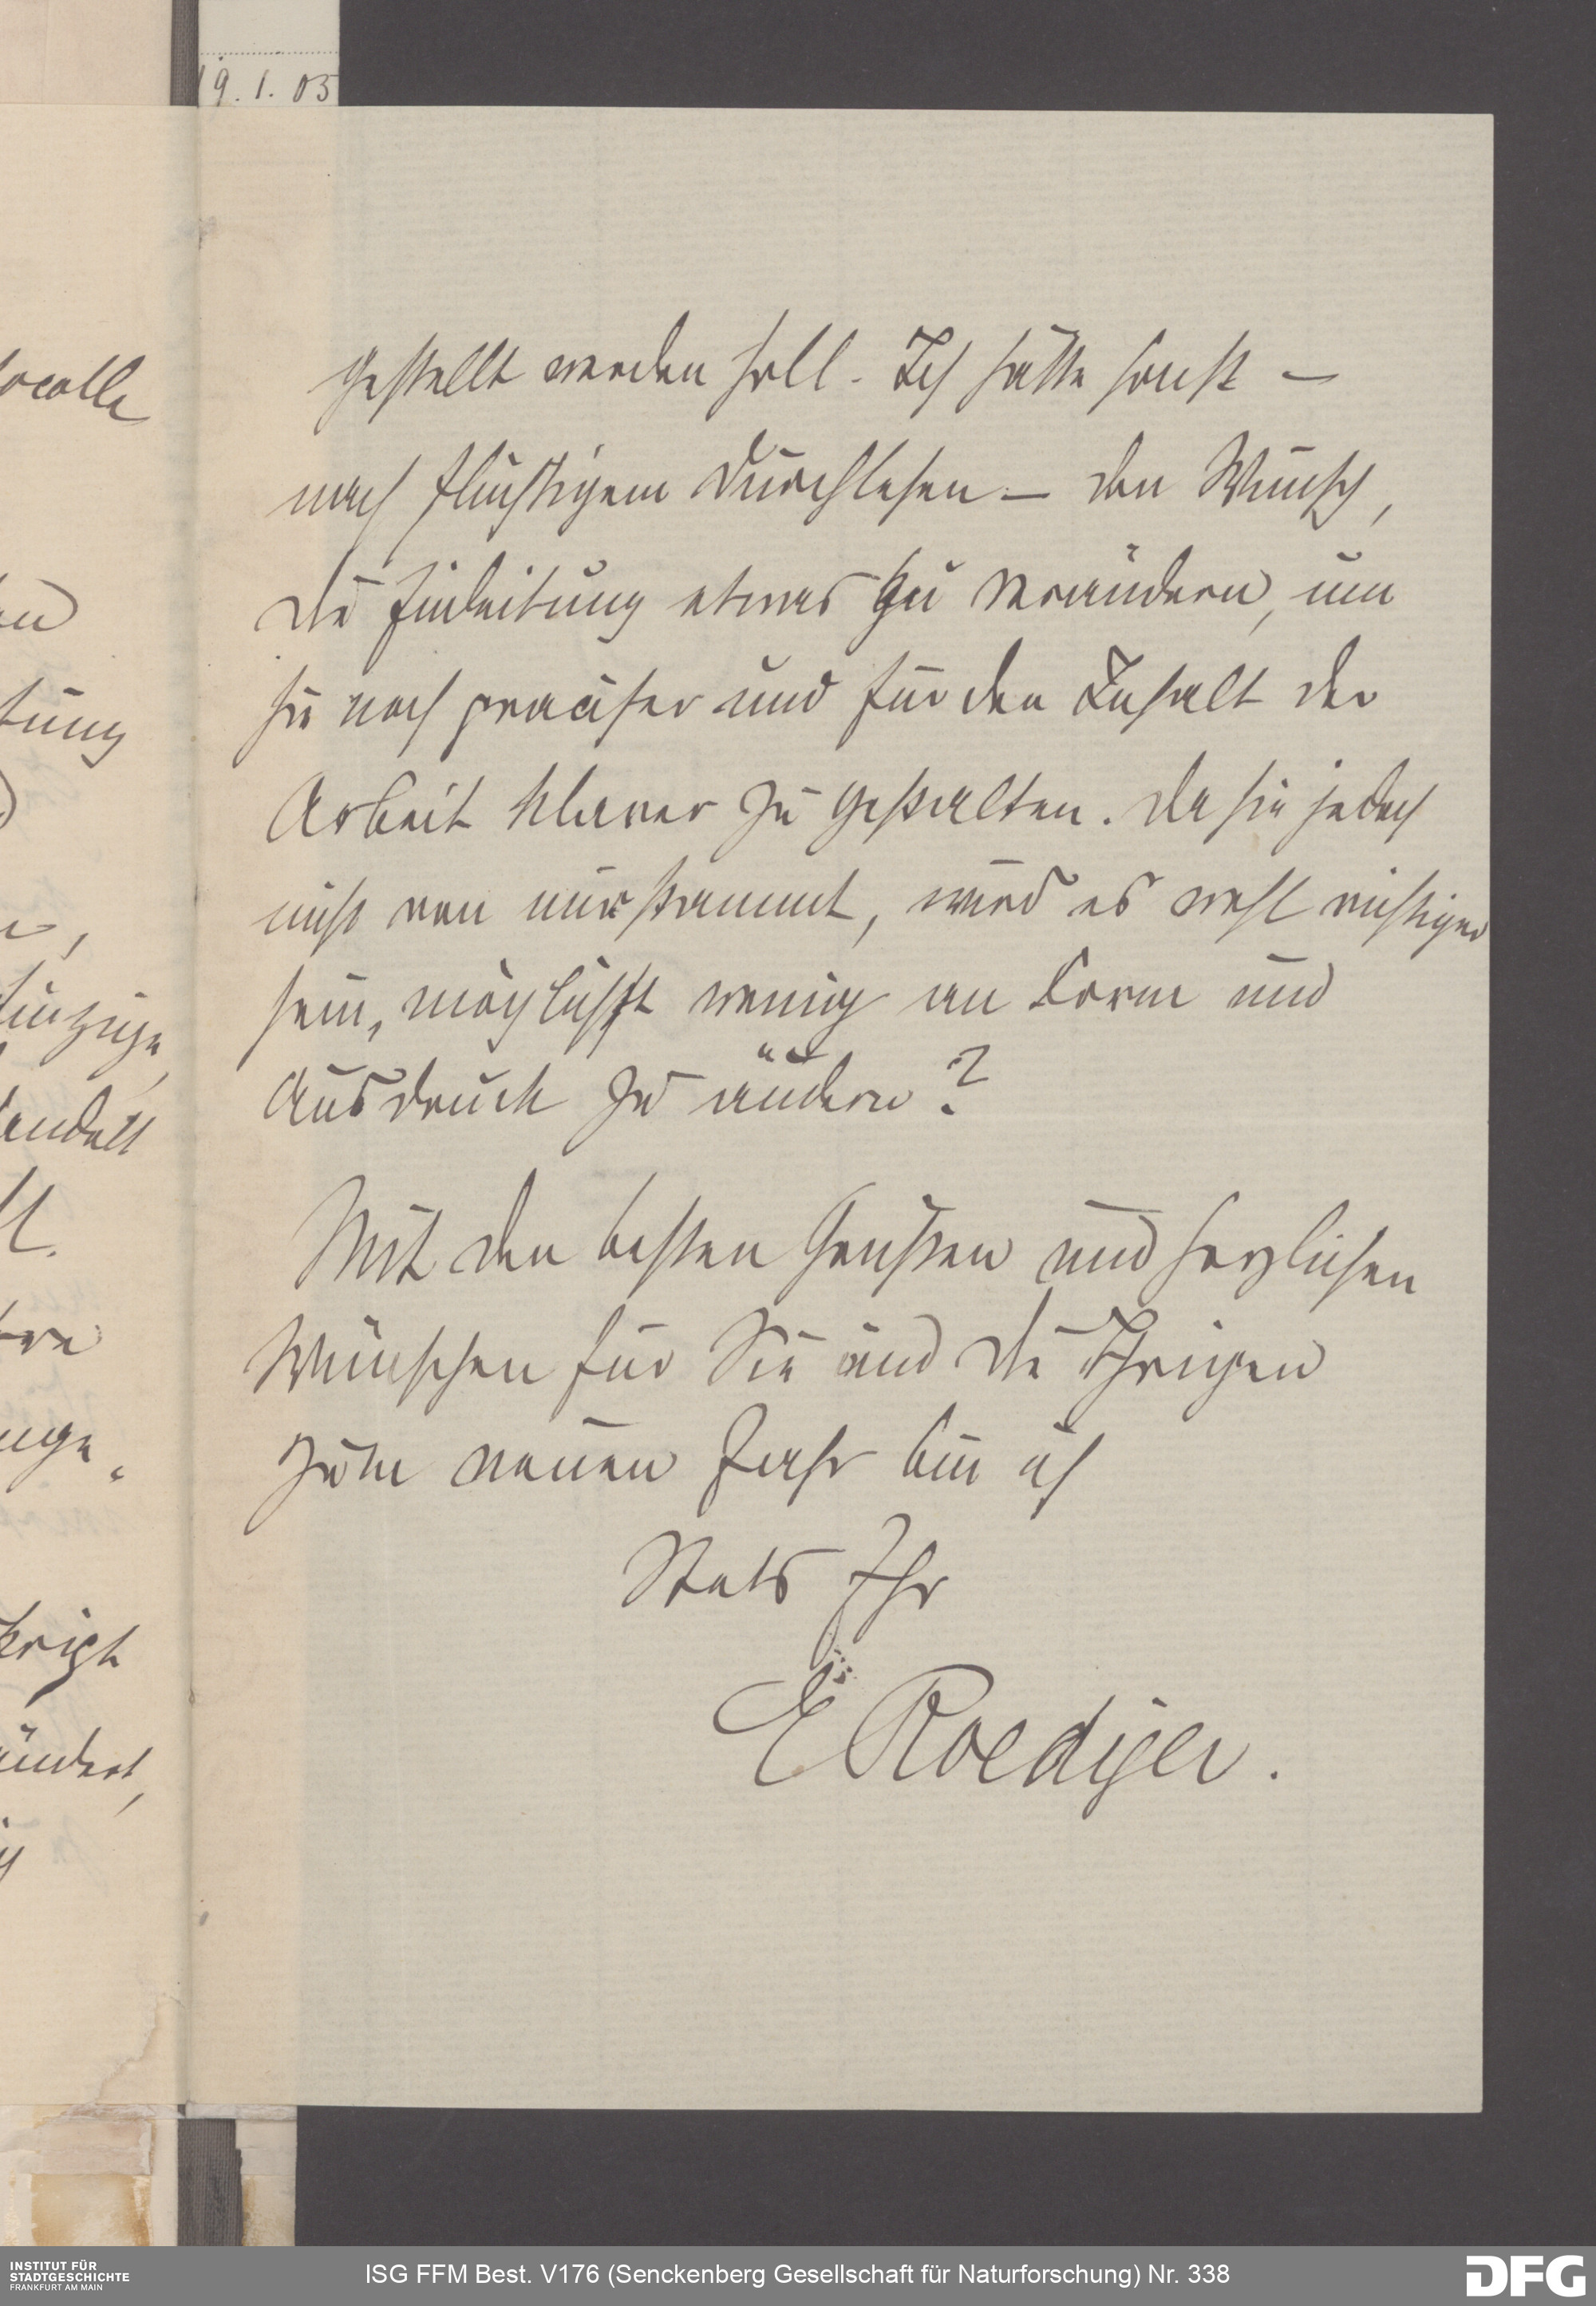 19. 1. 05
gestellt werden soll. Ich hätte sonst –
nach flüchtigem Durchlesen – den Wunsch,
die Einleitung etwas zu verändern, um
sie noch praeciser und für den Inhalt der
Arbeit klarer zu gestalten. Da sie jedoch
nicht von mir stammt, wird es wohl richtiger
sein, möglichst wenig an Form und
Ausdruck zu ändern?
Mit den besten Grüßen und herzlichen
Wünschen für Sie und die Ihrigen
zum neuen Jahr bin ich
Stets Ihr
E Roediger.
ocolle
en
tung
einzige,
andelt
uge
ändert,
INSTITUT FÜR
STADTGESCHICHTE
FRANKFURT AM MAIN
ISG FFM Best. V176 (Senckenberg Gesellschaft für Naturforschung) Nr. 338
DFG